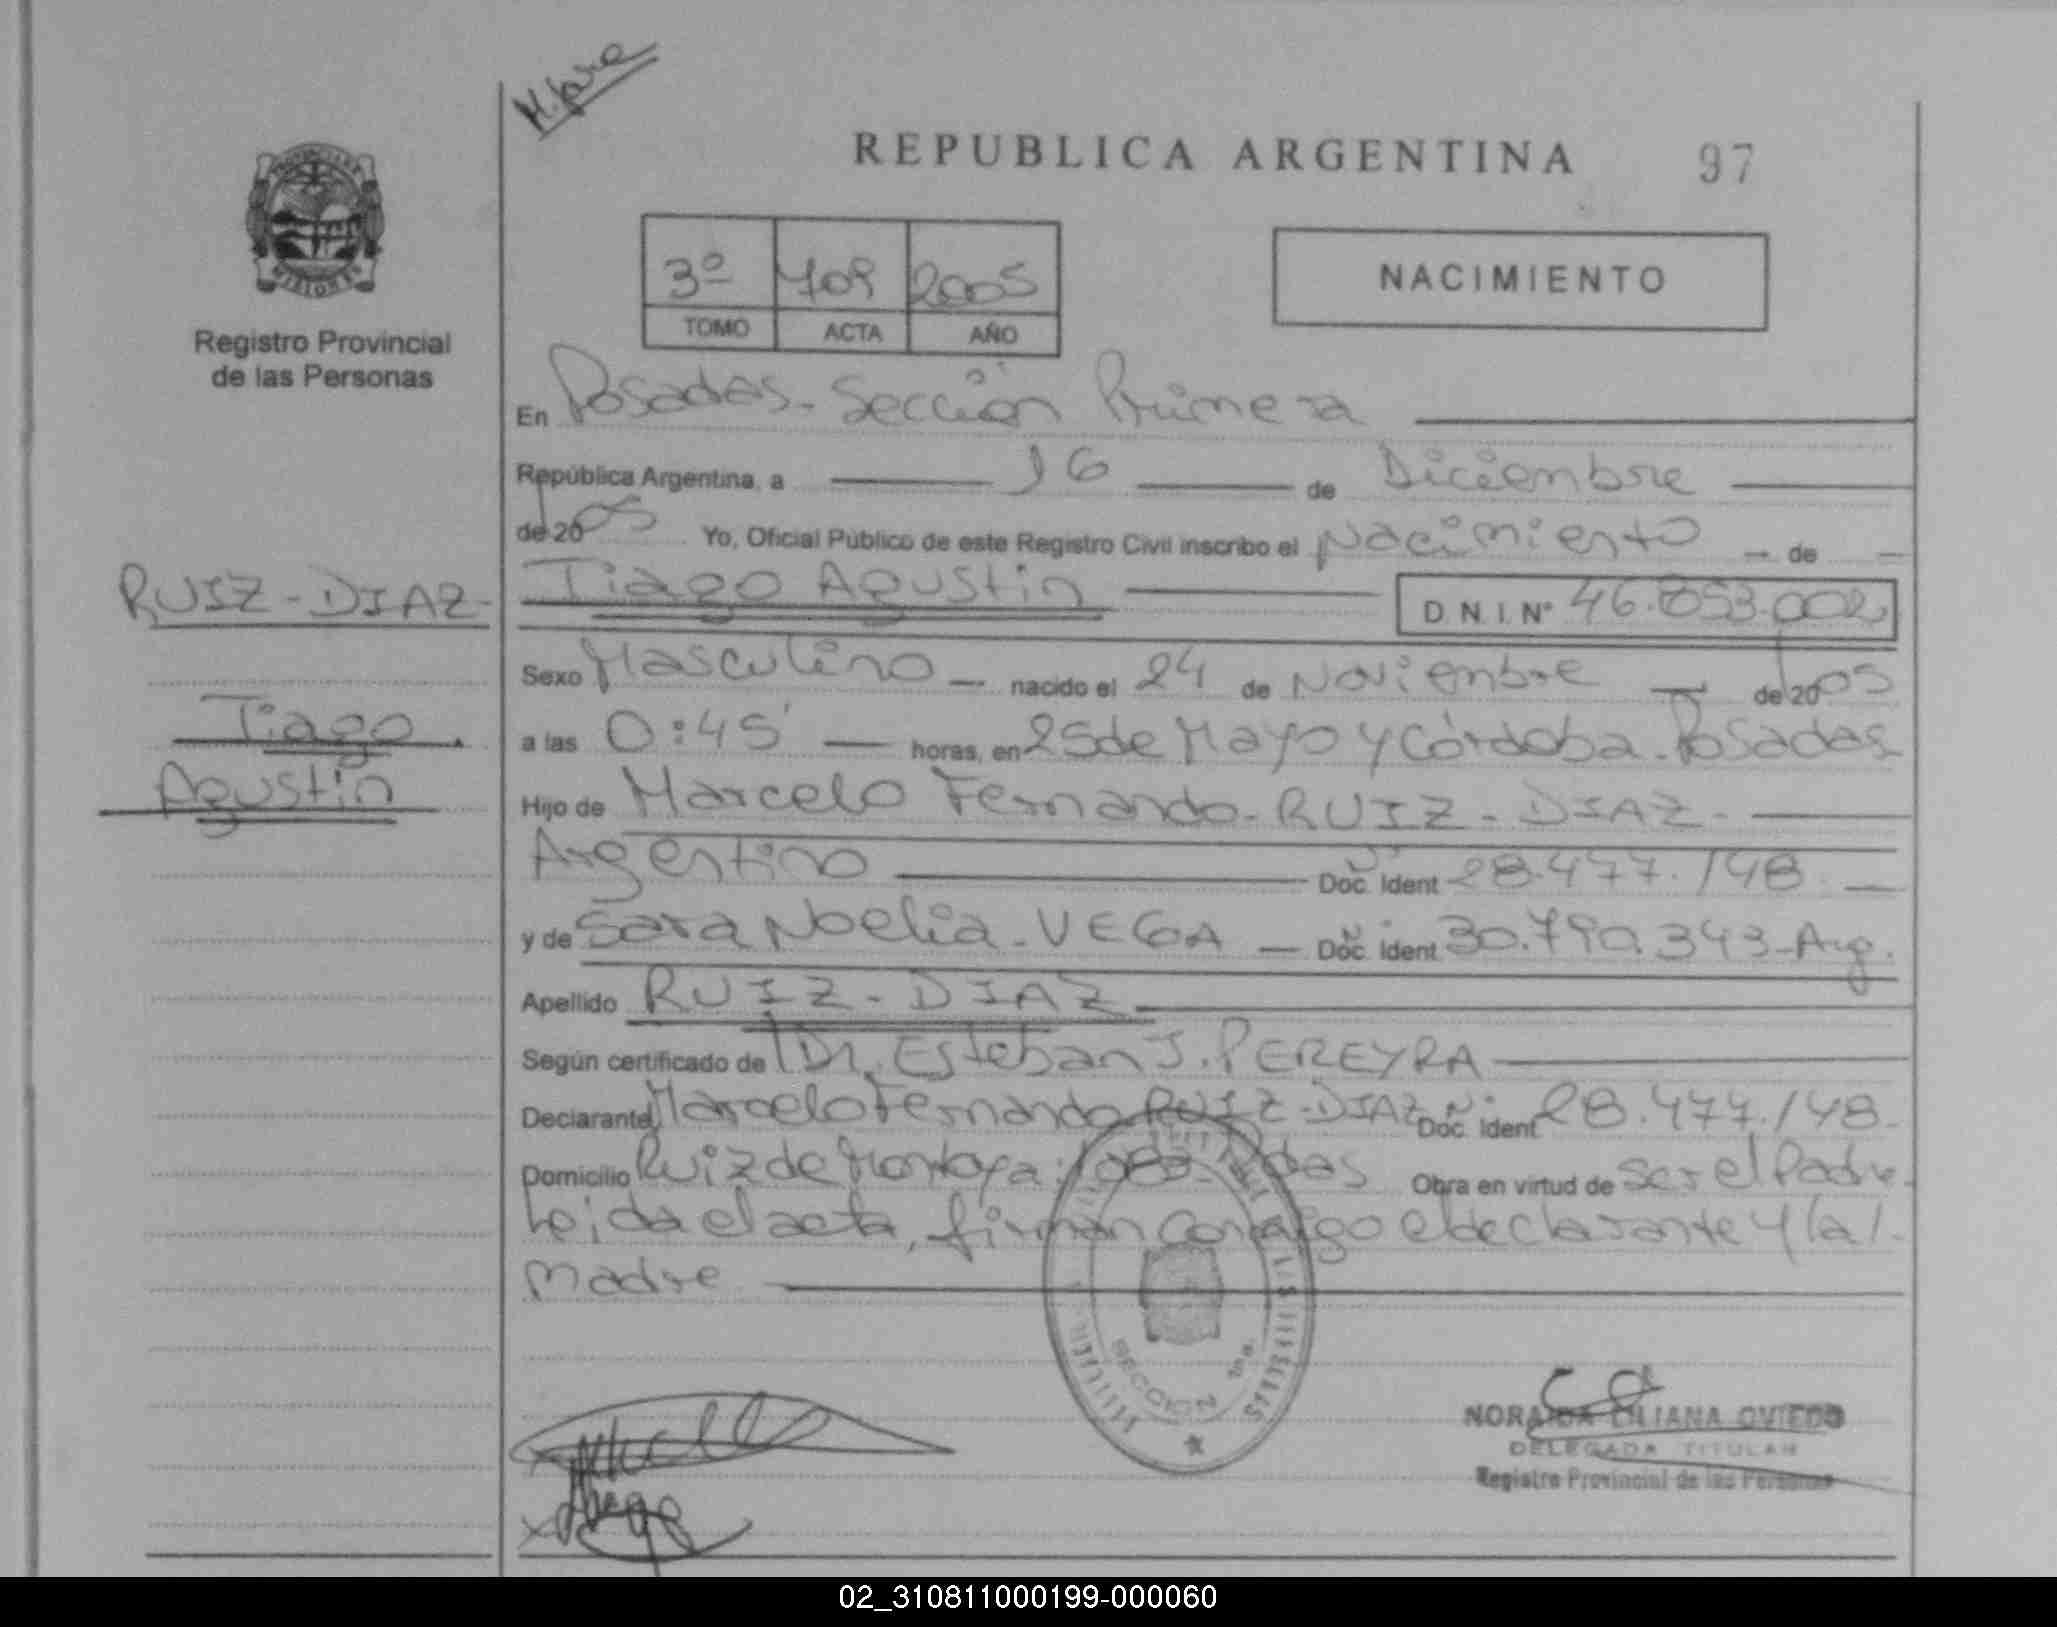 REPUBLICA ARGENTINA 97
PROVINCIA DE
MISIONES
Registro Provincial
de las Personas
3º 709 2005
TOMO ACTA AÑO
NACIMIENTO
En Posadas - Sección Primera
República Argentina, a 16 de Diciembre
de 20 05 Yo, Oficial Público de este Registro Civil inscribo el Nacimiento de
RUIZ - DIAZ -
Tiago Agustin D.N.I. Nº 46.853.002
Sexo Masculino nacido el 24 de Noviembre de 20 05
Tiago
a las 0:45' horas, en 25 de Mayo y Córdoba - Posadas
Agustin
Hijo de Marcelo Fernando - RUIZ - DIAZ -
Argentino Doc. Ident 28.477.148
y de Sara Noelia - VEGA Doc. Ident 30.790.343 - Arg.
Apellido RUIZ - DIAZ
Según certificado de Dr. Esteban J. PEREYRA
Declarante Marcelo Fernando RUIZ - DIAZ Doc. Ident 28.477.148
Domicilio Ruiz de Montoya Obra en virtud de ser el Padre
Leida el acta, firman conmigo el declarante y la
madre
SECCION 1ra.
NORAIDA LILIANA OVIEDO
DELEGADA TITULAR
Registro Provincial de las Personas
02_310811000199-000060